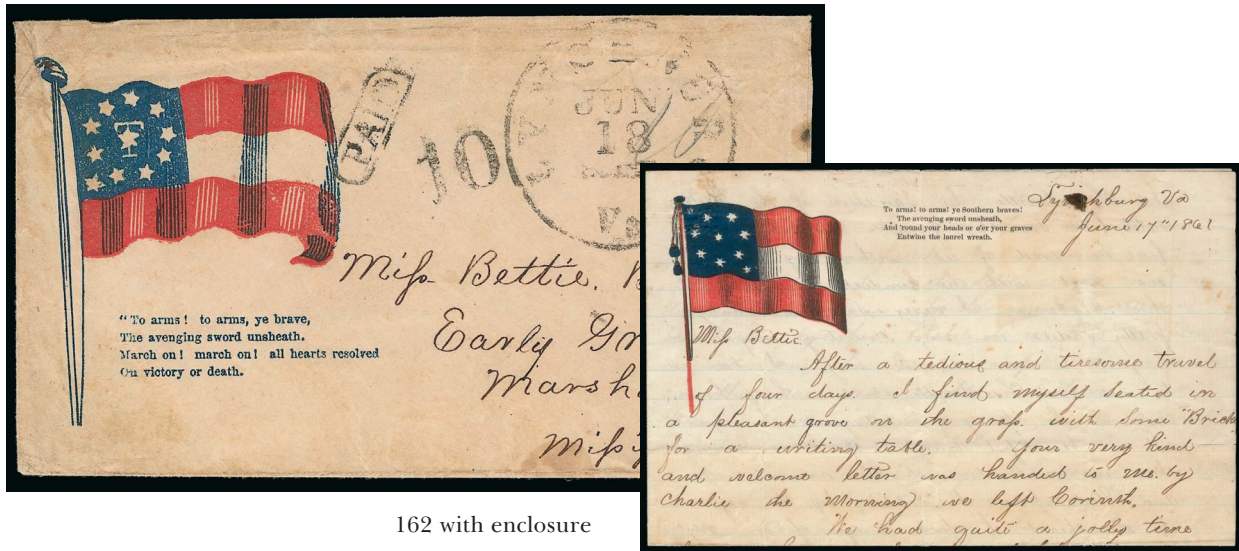 PAID
10
JUN
18
Va
"To arms! to arms, ye brave,
The avenging sword unsheath.
March on! march on! all hearts resolved
On victory or death.
Miss Bettie.
Early Gr
Marsh
Missi
162 with enclosure
To arms! to arms! ye Southern braves!
The avenging sword unsheath,
And 'round your heads or o'er your graves
Entwine the laurel wreath.
Lynchburg Va
June 17th 1861
Miss Bettie
After a tedious and tiresome travel
of four days I find myself seated in
a pleasant grove on the grass. with some "Bricks
for a writing table. Your very kind
and welcome letter was handed to me. by
Charlie the Morning we left Corinth.
We had quite a jolly time